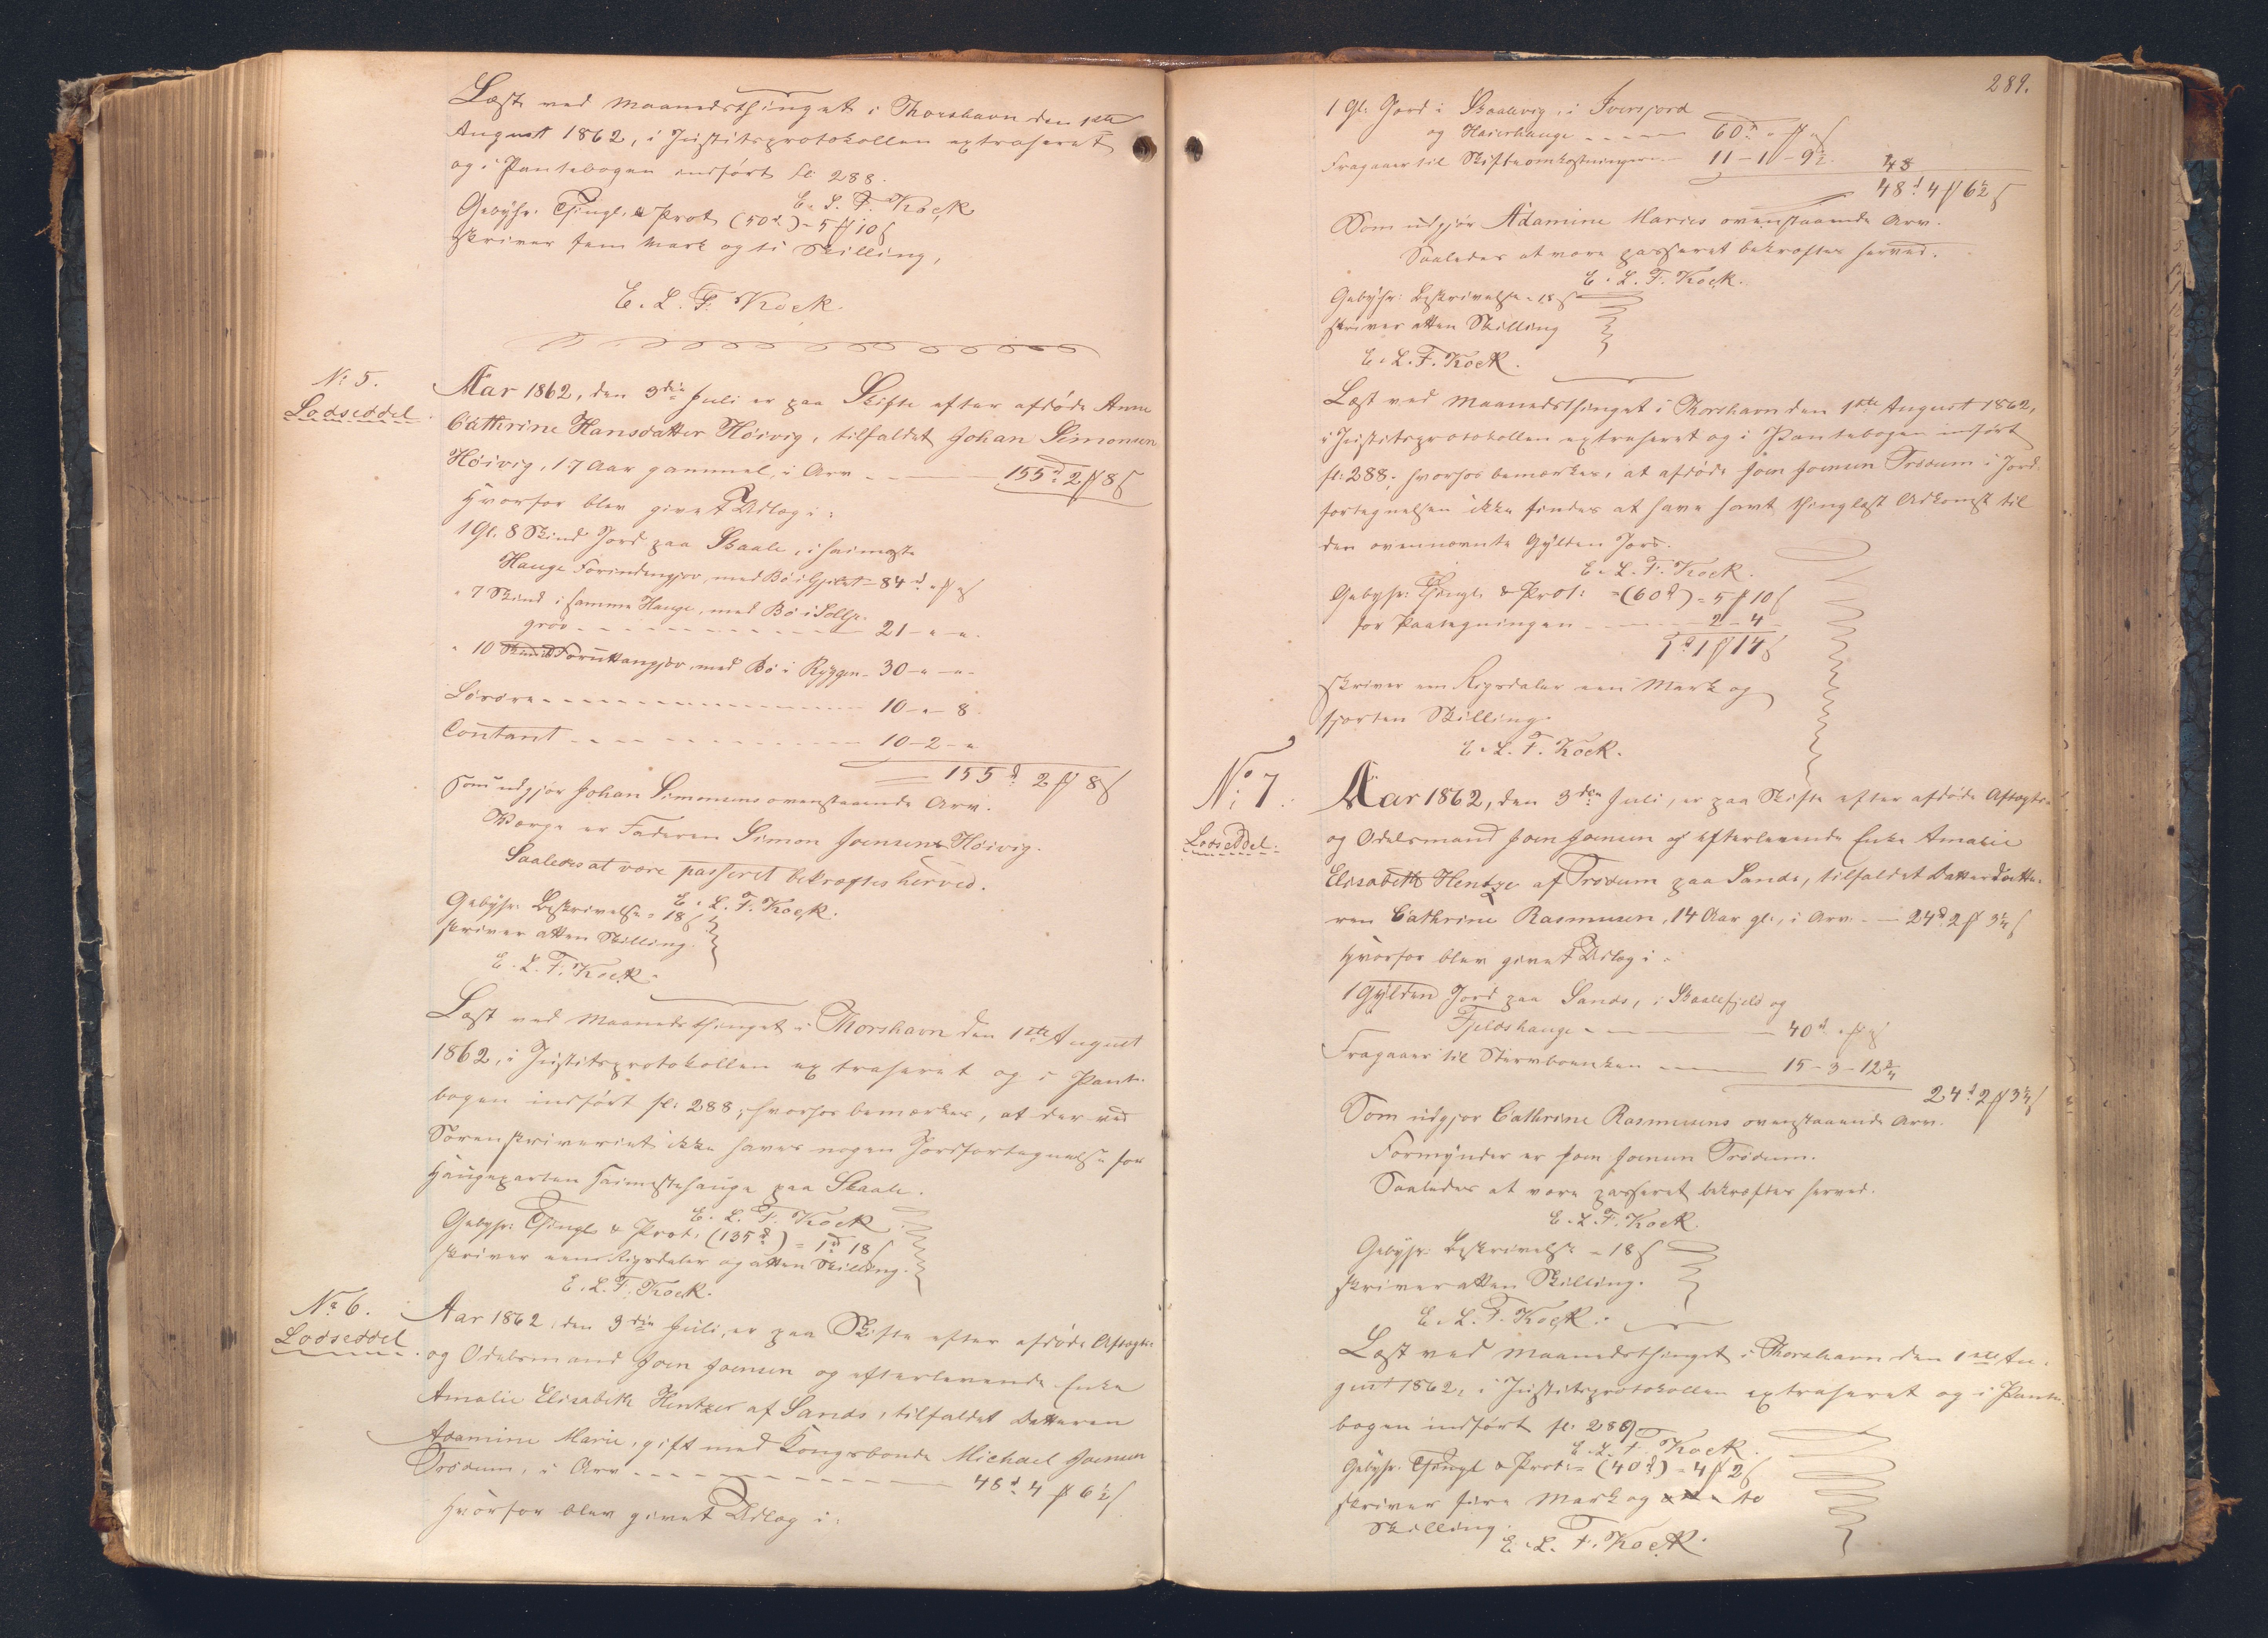 Læst ved Maanedsthinget i Thorshavn den 1ste
August 1862, i Justitsprotokollen extraheret
og i Pantebogen indført fl. 288.
E. L. F. Kock
Gebyhr: Thingl. & Prot. (50d) = 5 ß 10 s
skriver fem Mark og ti Skilling,
E. L. F. Kock.
No 5.
Lodseddel.
Aar 1862, den 3die Juli er paa Skifte efter afdøde Anne
Cathrine Hansdatter Höivig, tilfaldet Johan Simonsen
Höivig, 17 Aar gammel, i Arv - - - 155d 2 ß 8 s
Hvorfor blev givet Udlæg i:
1 Gl. 8 Skind Jord paa Skaale, i Haimeste
Hauge Forindengjov, med Bø i Gjilet - 84d " ß " s
" 7 Skind i samme Hauge, med Bø i
grov - - - 21 - " - "
" 10 Skind Foruttangjov, med Bø i Ryggen - 30 - " - "
Løsøre - - - 10 - " - 8
Contant - - - 10 - 2 - "
155d 2 ß 8 s
som udgjør Johan Simonsens ovenstaaende Arv.
Værge er Faderen Simon Joensen Höivig.
Saaledes at være passeret bekræftes herved.
E. L. F. Kock.
Gebyhr: Beskrivelse = 18 s
skriver atten Skilling.
E. L. F. Kock.
Læst ved Maanedsthinget i Thorshavn den 1ste August
1862, i Justitsprotokollen extraheret og i Pante-
bogen indført fl. 288; hvorhos bemærkes, at der ved
Sorenskriveriet ikke haves nogen Jordfortegnelse for
Haugeparten Haimestehauge paa Skaale.
E. L. F. Kock.
Gebyhr: Thingl. & Prot. (135d) = 1d 18 s
skriver een Rigsdaler og atten Skilling.
E. L. F. Kock.
No 6.
Lodseddel.
Aar 1862, den 3die Juli, er paa Skifte efter afdøde Aftægts-
og Odelsmand Joen Joensen og efterlevende Enke
Amalie Elisabeth Hentzes af Sands, tilfaldet Datteren
Adamine Marie, gift med Kongsbonde Michael Joensen
Trödum, i Arv - - - 48d 4 ß 6½ s
Hvorfor blev givet Udlæg i:
289.
1 Gl. Jord i Skaalevig, i Iversjord
og Haiershauge - - - 60d " ß " s
Fragaaer til Skifteomkostningerne - 11 - 1 - 9½
48
48d 4 ß 6½ s
Som udgjør Adamine Maries ovenstaaende Arv.
Saaledes at være passeret bekræftes herved.
E. L. F. Kock.
Gebyhr: Beskrivelse = 18 s
skriver atten Skilling
E. L. F. Kock.
Læst ved Maanedsthinget i Thorshavn den 1ste August 1862,
i Justitsprotokollen extraheret og i Pantebogen indført
fl. 288; hvorhos bemærkes, at afdøde Joen Joensen Trödum i Jord-
fortegnelsen ikke findes at have havt thinglæst Adkomst til
den ovennævnte Gylden Jord.
E. L. F. Kock.
Gebyhr: Thingl. & Prot: = (60d) = 5 ß 10 s
for Paategningen - - - 2 - 4 -
1d 1 ß 14 s
skriver een Rigsdaler een Mark og
fjorten Skilling.
E. L. F. Kock.
No 7.
Lodseddel.
Aar 1862, den 3die Juli, er paa Skifte efter afdøde Aftægts-
og Odelsmand Joen Joensen og efterlevende Enke Amalie
Elisabeth Hentze af Trödum paa Sande, tilfaldet Datterdatte-
ren Cathrine Rasmusen, 14 Aar gl., i Arv - - 24d 2 ß 3¼ s
Hvorfor blev givet Udlæg i:
1 Gylden Jord paa Sands, i Skaalefjeld og
Fjeldshauge - - - 40d " ß " s
Fragaaer til Stervboenken - - - 15 - 3 - 12¾
24d 2 ß 3¼ s
Som udgjør Cathrine Rasmusens ovenstaaende Arv.
Formynder er Joen Joensen Trödum.
Saaledes at være passeret bekræftes herved.
E. L. F. Kock.
Gebyhr: Beskrivelse = 18 s
skriver atten Skilling.
E. L. F. Kock.
Læst ved Maanedsthinget i Thorshavn den 1ste Au-
gust 1862, i Justitsprotokollen extraheret og i Pante-
bogen indført fl. 289
E. L. F. Kock.
Gebyhr: Thingl & Prot: = (40d) = 4 ß 2 s
skriver fire Mark og to
Skilling.
E. L. F. Kock.